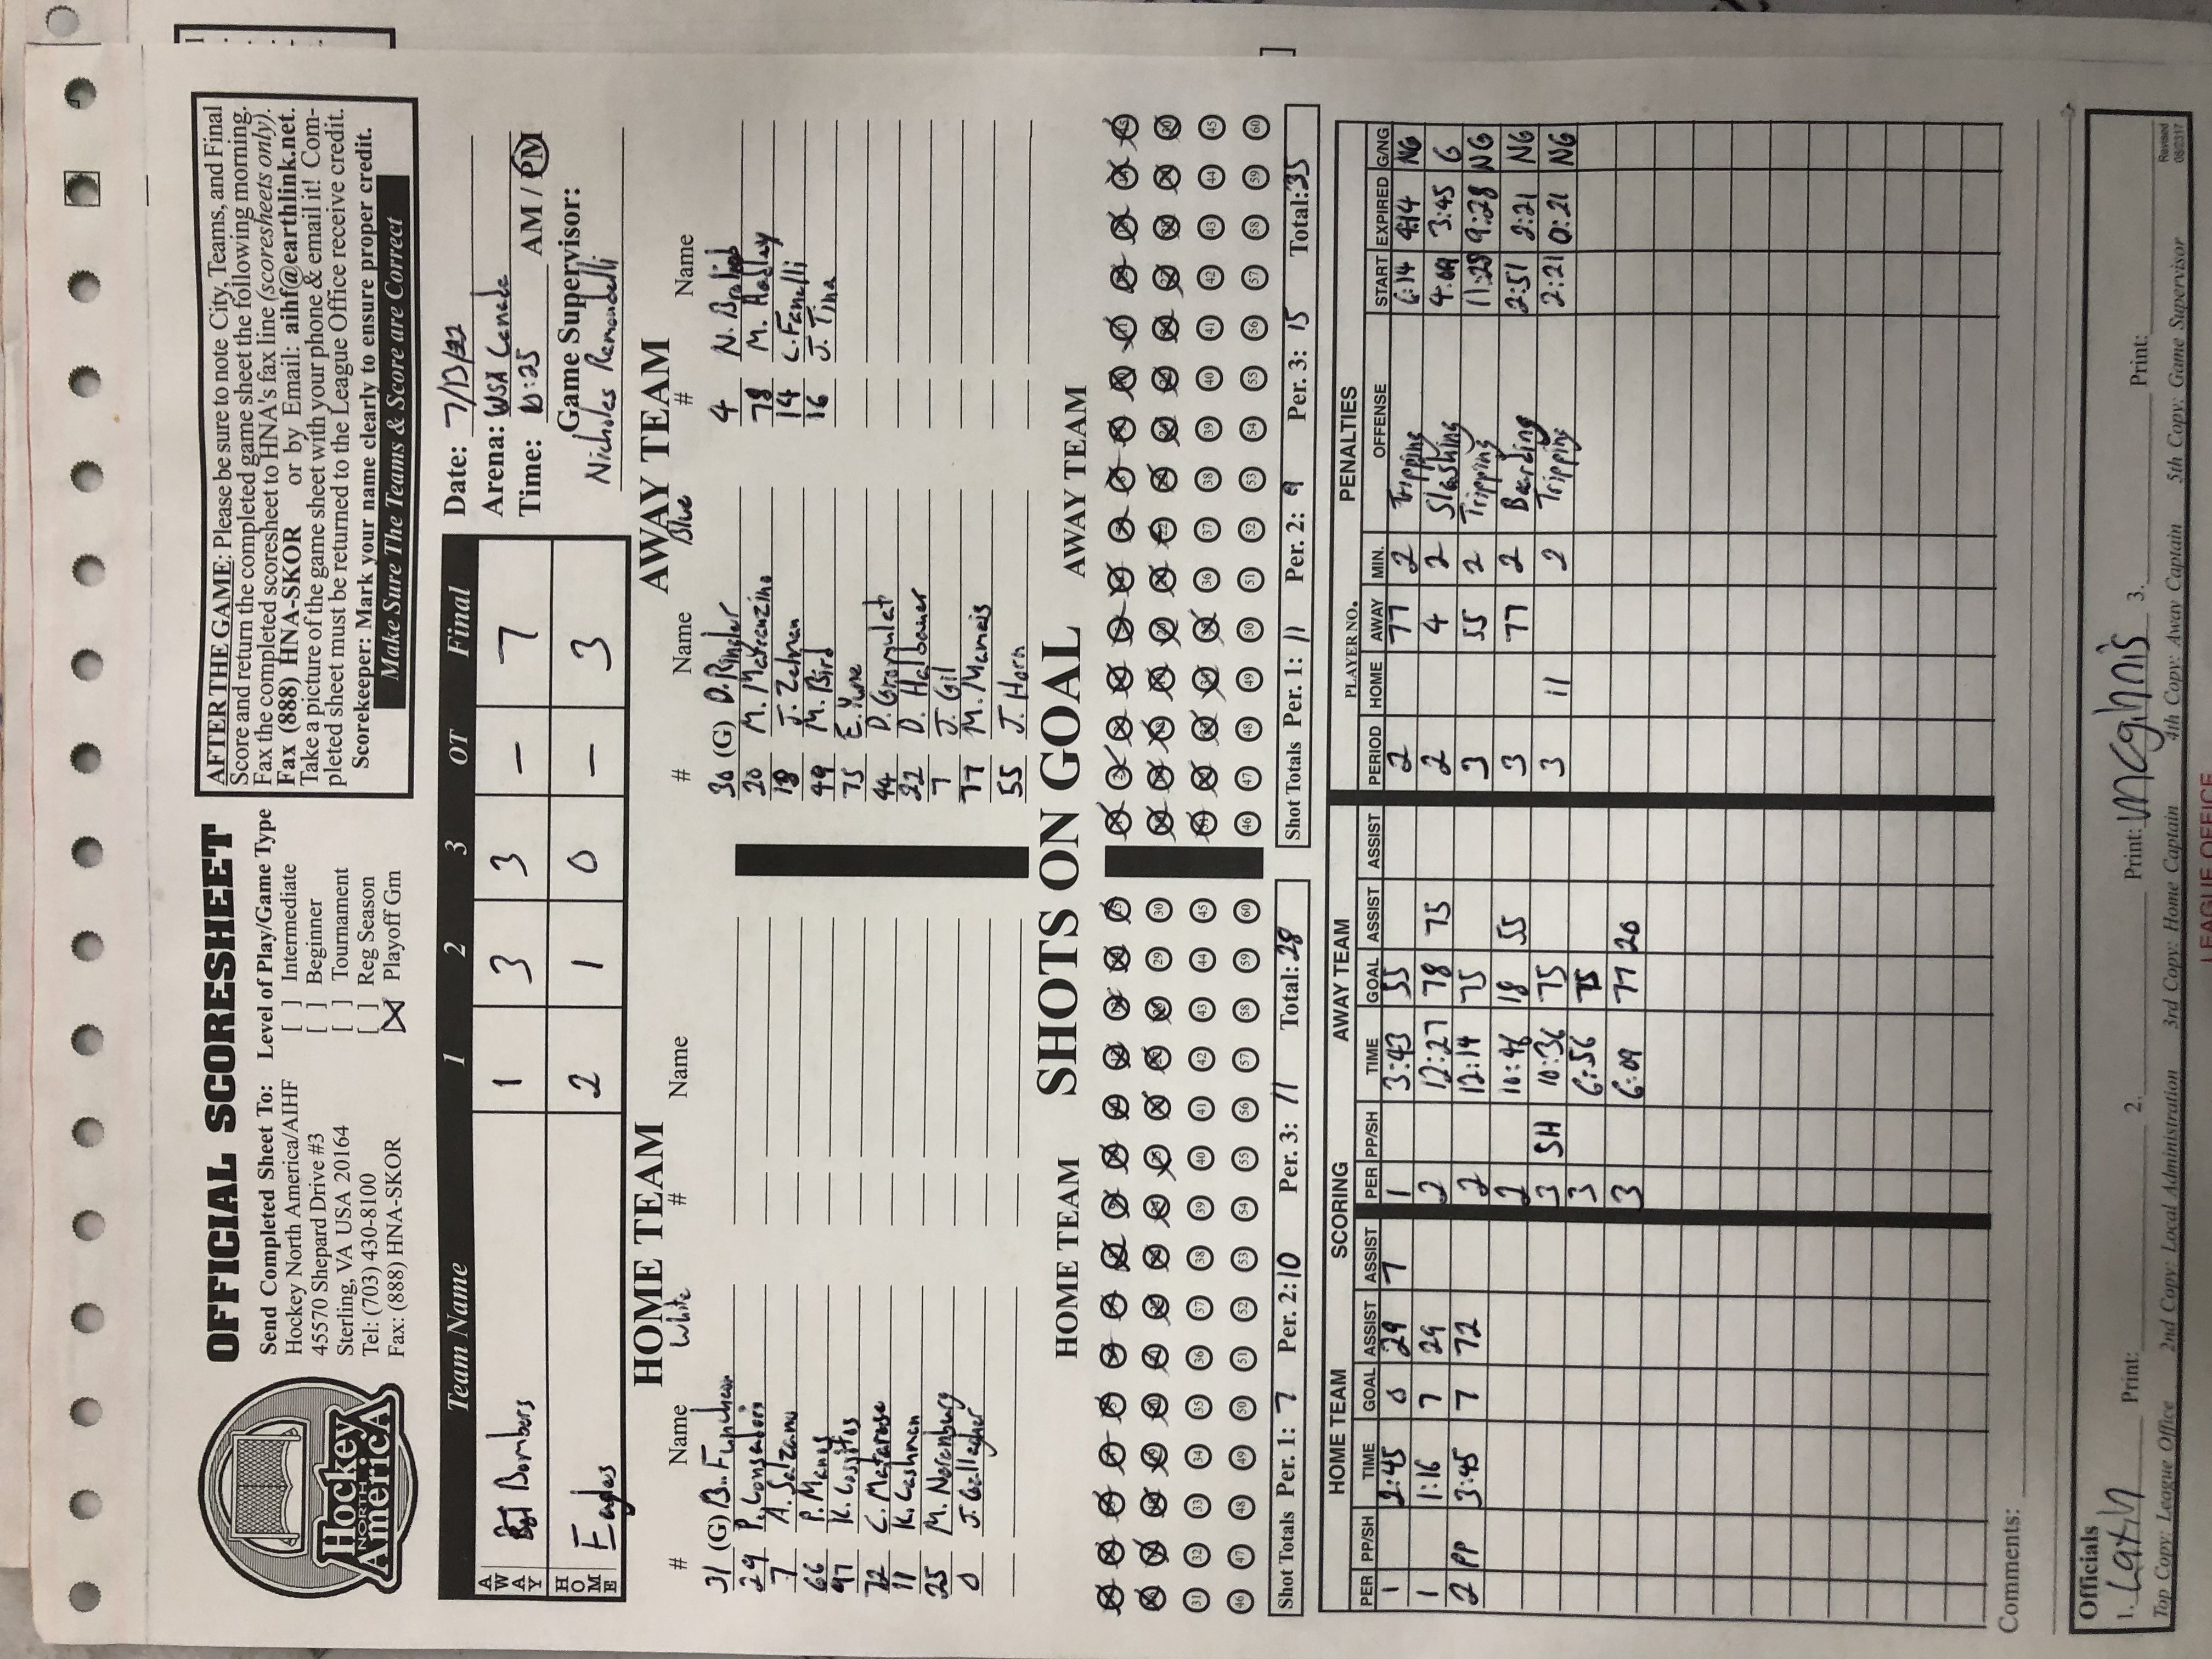 OFFICIAL SCORESHEET
Hockey
NORTH
AmericA
Send Completed Sheet To:
Hockey North America/AIHF
45570 Shepard Drive #3
Sterling, VA USA 20164
Tel: (703) 430-8100
Fax: (888) HNA-SKOR
Level of Play/Game Type
[ ] Intermediate
[ ] Beginner
[ ] Tournament
[ ] Reg Season
[X] Playoff Gm
AFTER THE GAME: Please be sure to note City, Teams, and Final
Score and return the completed game sheet the following morning.
Fax the completed scoresheet to HNA's fax line (scoresheets only).
Fax (888) HNA-SKOR or by Email: aihf@earthlink.net.
Take a picture of the game sheet with your phone & email it! Com-
pleted sheet must be returned to the League Office receive credit.
Scorekeeper: Mark your name clearly to ensure proper credit.
Make Sure The Teams & Score are Correct
Team Name 1 2 3 OT Final
AWAY Bombers 1 3 3 - 7
HOME Eagles 2 1 0 - 3
Date: 7/13/22
Arena: WSA Canada
Time: 10:25 AM / PM
Game Supervisor:
Nicholas
HOME TEAM
White
# Name # Name
31 (G) B.
29 P.
7 A. Salzano
66 P. Manos
97 K.
72 C. Matarese
11 K. Cashman
25 M. Norenburg
0 J. Gallagher
AWAY TEAM
Blue
# Name # Name
30 (G) D. Ringler
20 M.
18 J. Zelman
49 M. Bird
75 E. Yune
44 D. Gromulat
22 D. Halbauer
7 J. Gil
77 M. Mamais
55 J. Horn
4 N.
78 M. Hadley
14 C. Fanelli
16 J. Tina
HOME TEAM SHOTS ON GOAL AWAY TEAM
29 30
31 32 33 34 35 36 37 38 39 40 41 42 43 44 45
46 47 48 49 50 51 52 53 54 55 56 57 58 59 60
Shot Totals Per. 1: 7 Per. 2: 10 Per. 3: 11 Total: 28
36 37 38 39 40 41 42 43 44 45
46 47 48 49 50 51 52 53 54 55 56 57 58 59 60
Shot Totals Per. 1: 11 Per. 2: 9 Per. 3: 15 Total: 35
SCORING
HOME TEAM
PER PP/SH TIME GOAL ASSIST ASSIST
1 2:45 0 29 7
1 1:16 7 29
2 PP 3:45 7 72
AWAY TEAM
PER PP/SH TIME GOAL ASSIST ASSIST
1 3:43 55
2 12:27 78 75
2 12:14 75
2 10:46 18 55
3 SH 10:36 75
3 6:56 75
3 6:09 77 20
PENALTIES
PLAYER NO.
PERIOD HOME AWAY MIN. OFFENSE START EXPIRED G/NG
2 77 2 Tripping 6:14 4:14 NG
2 4 2 Slashing 4:09 3:45 G
3 55 2 Tripping 11:28 9:28 NG
3 77 2 Boarding 2:51 2:21 NG
3 11 2 Tripping 2:21 0:21 NG
Comments:
Officials
1. Print: 2. Print: mcghnis 3. Print:
Top Copy: League Office 2nd Copy: Local Administration 3rd Copy: Home Captain 4th Copy: Away Captain 5th Copy: Game Supervisor
Revised
08/23/17
LEAGUE OFFICE